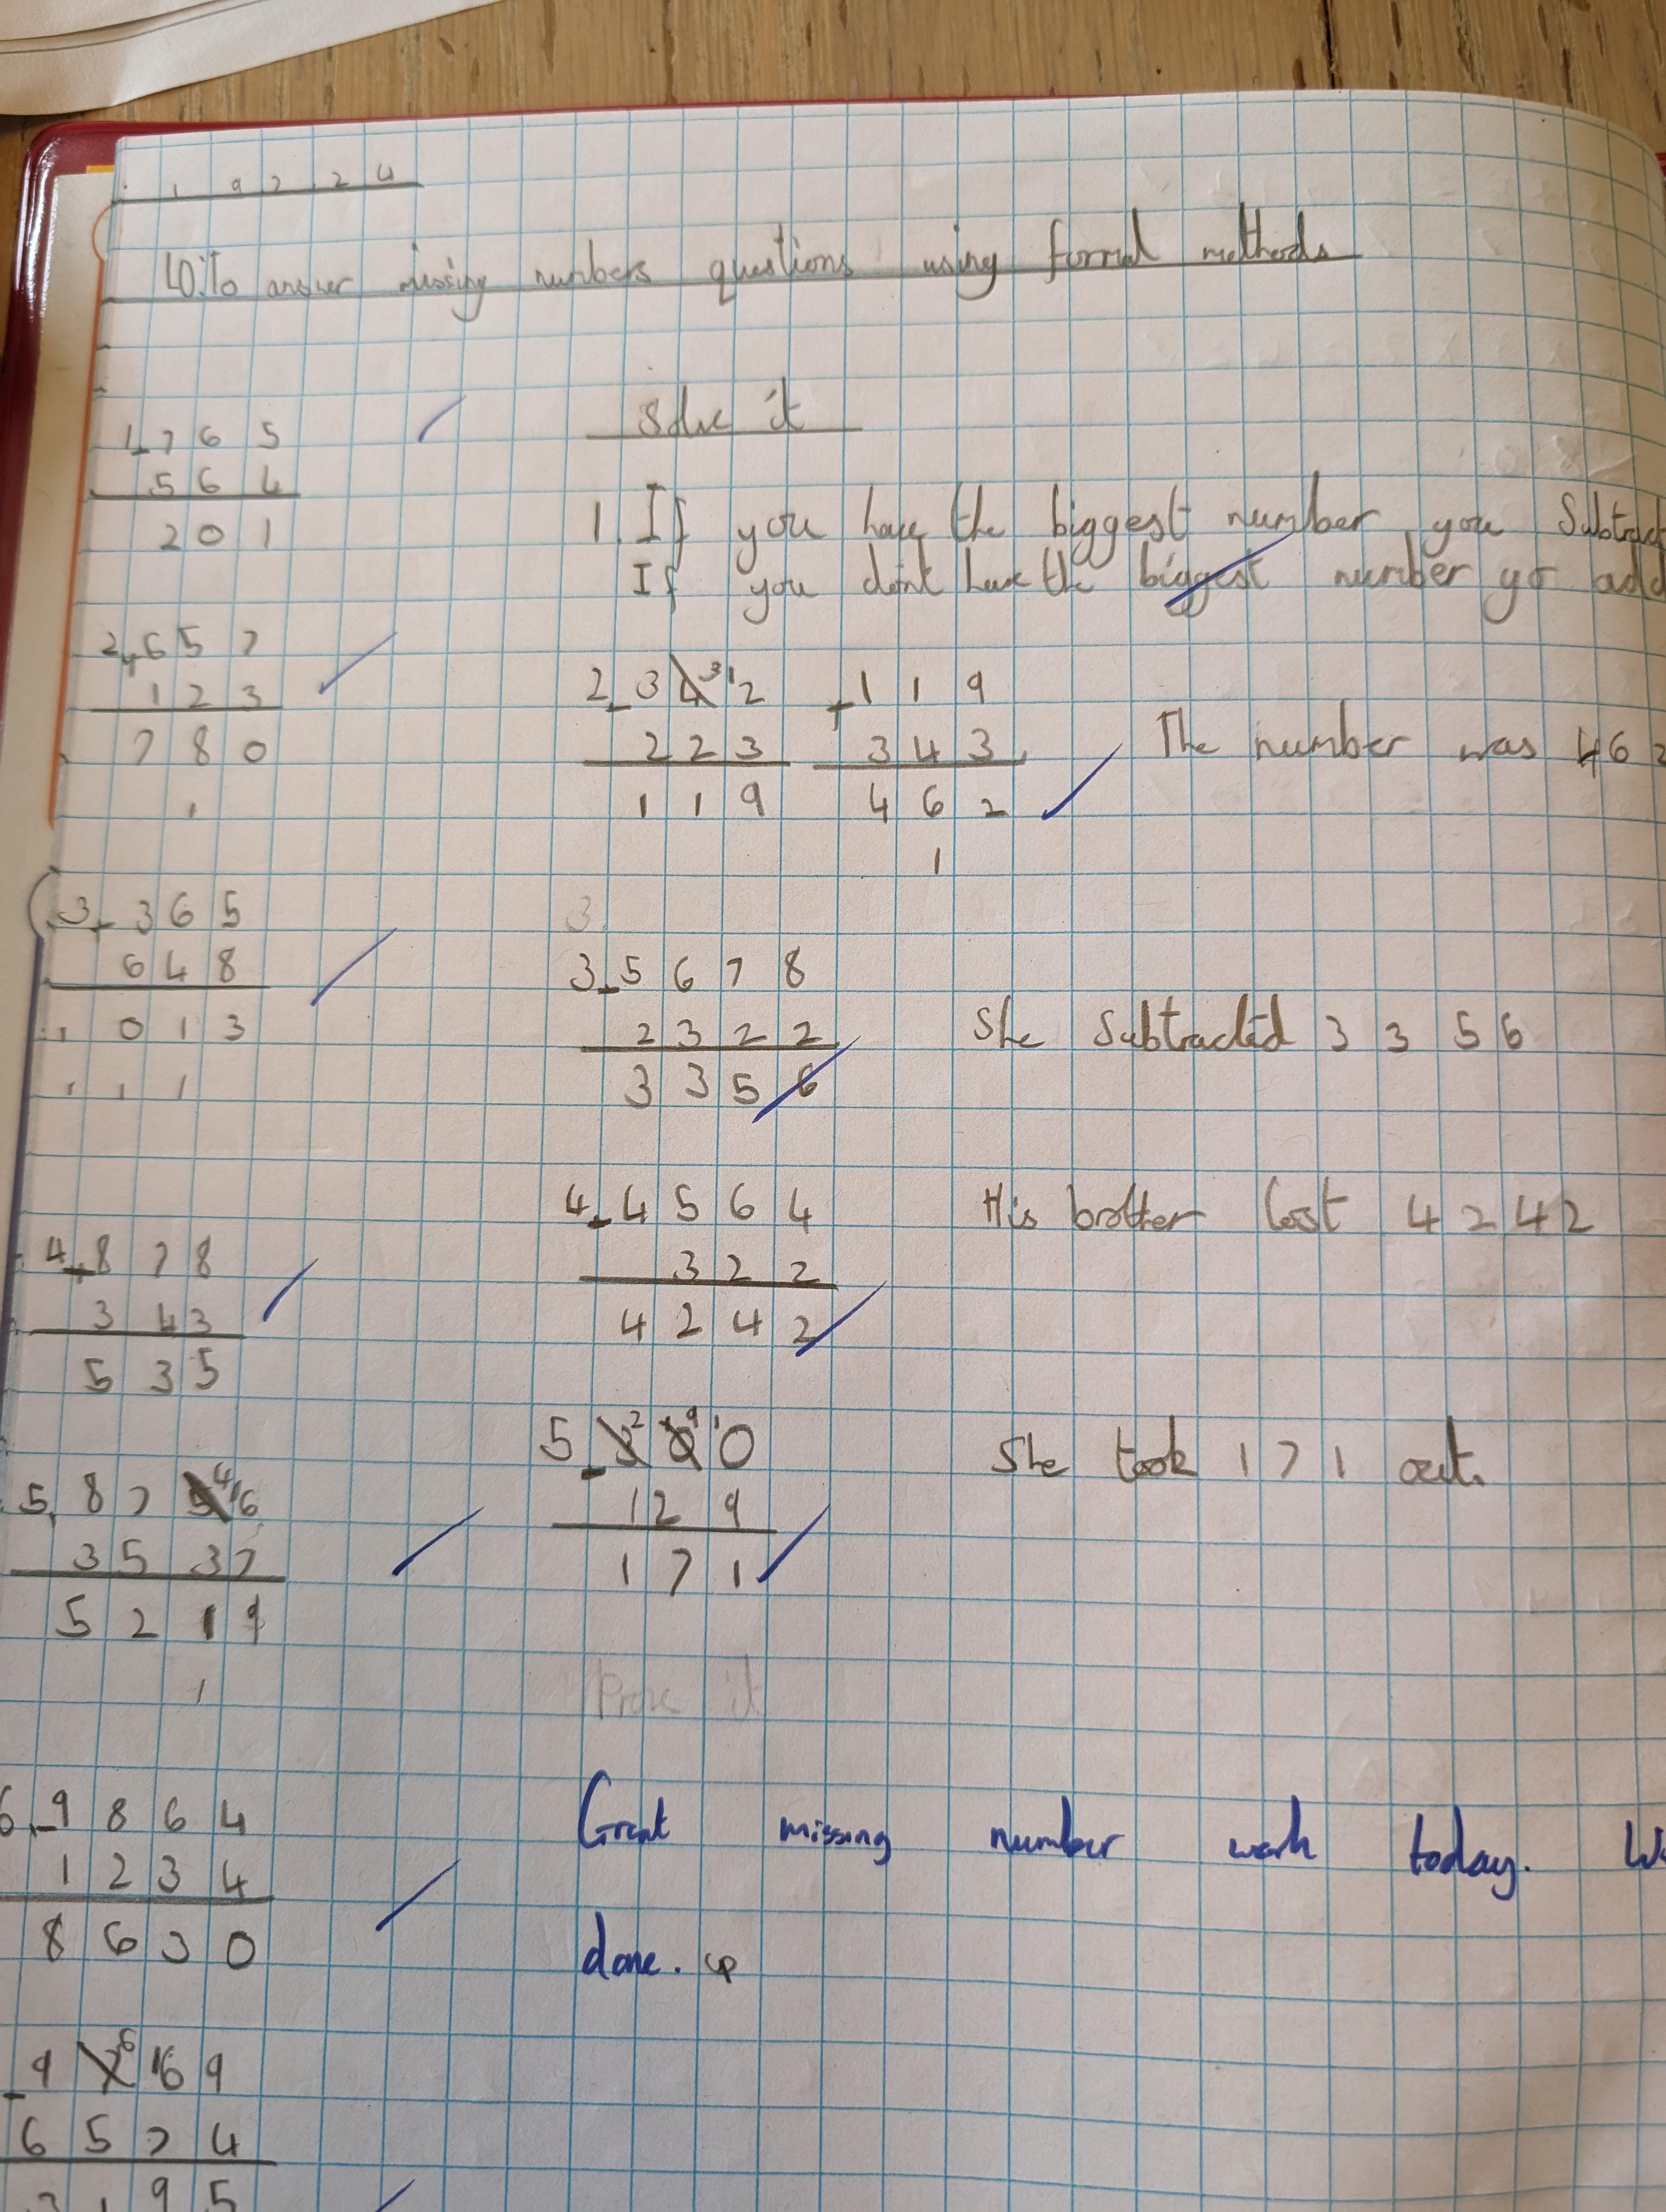 1 9 2 2 4
LO: To answer missing numbers questions using formal methods
1 - 7 6 5
5 6 4
2 0 1
2 + 6 5 7
1 2 3
7 8 0
1
3 + 3 6 5
6 4 8
1 0 1 3
1 1 1
4 - 8 7 8
3 4 3
5 3 5
5. 8 7 5 4 1 6
3 5 3 7
5 2 1 9
1
6. - 9 8 6 4
1 2 3 4
8 6 3 0
- 9 7 6 16 9
6 5 7 4
3 1 9 5
Solve it
1. If you have the biggest number you Subtract
If you dont have the biggest number yo add
2 - 3 4 3 1 2
2 2 3
1 1 9
+ 1 1 9
3 4 3
4 6 2
1
The number was 4 6 2
3.
3 - 5 6 7 8
2 3 2 2
3 3 5 6
She Subtracted 3 3 5 6
4. - 4 5 6 4
3 2 2
4 2 4 2
His brother lost 4 2 4 2
5 - 3 2 0 9 1 0
1 2 9
1 7 1
She took 1 7 1 out.
Prove it
Great missing number work today. We
done. up